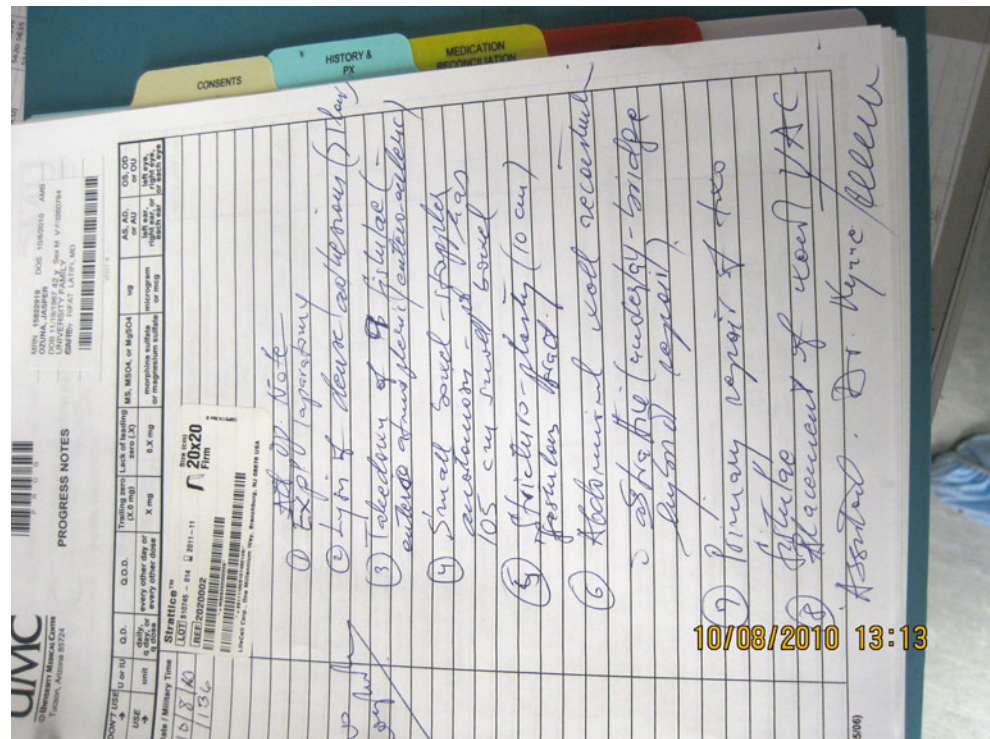 CONSENTS
HISTORY &
PX
MEDICATION
RECONCILIATION
UMC
© UNIVERSITY MEDICAL CENTER
Tucson, Arizona 85724
PROGRESS NOTES
MRN 15822919 DOS 10/8/2010 AMS
OZUNA, JASPER
DOB 11/19/1967 42 y. Sex M
UNIVERSITY FAMILY
RIFAT LATIFI, MD
DON'T USE → U or IU Q.D. Q.O.D. Trailing zero (X.0 mg) Lack of leading zero (.X) MS, MSO4, or MgSO4 ug AS, AD, or AU OS, OD or OU
USE → unit daily, q day, or q dose every other day or every other dose X mg 0.X mg morphine sulfate or magnesium sulfate microgram or mcg left ear, right ear, or each ear left eye, right eye, or each eye
Date / Military Time
10/8/10
1136
Strattice™
LOT S10745 - 014 2011-11
REF 2020002
Size (cm)
20x20
Firm
LifeCell Corp., One Millennium Way, Branchburg, NJ 08876 USA
Op. Note
① Expl. laparotomy
② Lysis of dense adhesions
③ Takedown of fistulae (
entero atmospheric/enteroenteric)
④ Small bowel - stapled
anastomosis
105 cm small bowel
⑤ Stricturo-plasty (10 cm)
⑥ Abdominal wall
c̄ strattice (underlay-bridge
⑦ Primary repair of two
fistulae
⑧ Placement of VAC
Assistant: Dr.
10/08/2010 13:13